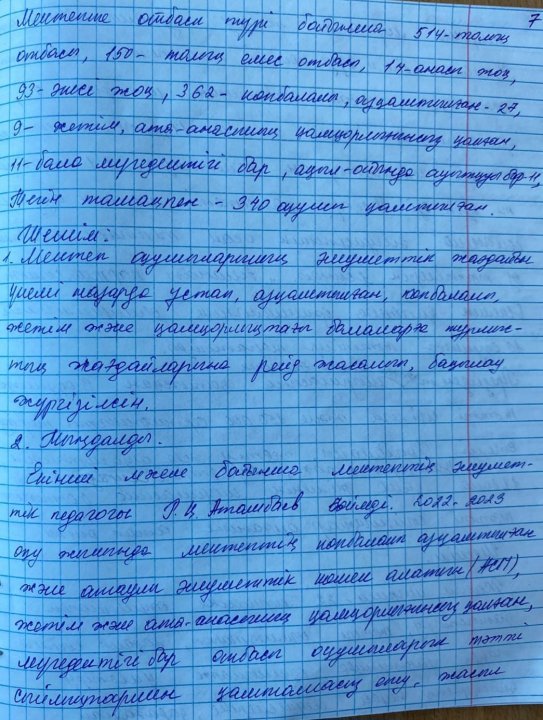 7
Мектепте отбасы түрі бойынша 514-толық
отбасы, 150- толық емес отбасы, 14-анасы жоқ,
93-әкесі жоқ, 362- көпбалалы, азқамтылған- 27,
9- жетім, ата-анасының қамқорлығынсыз қалған,
11-бала мүгедектігі бар, ақыл-ойында ауытқуы бар-11,
Тегін тамақпен - 340 оқушы қамтылған.
Шешім:
1. Мектеп оқушыларының әлеуметтік жағдайын
үнемі назарда ұстап, азқамтылған, көпбалалы,
жетім және қамқорлықтағы балаларға тұрмыс-
тық жағдайларына рейд жасалып, бақылау
жүргізілсін.
2. Тыңдалды.
Екінші мәселе бойынша мектептің әлеумет-
тік педагогы Р.Ц. Аташбаев сөйледі. 2022-2023
оқу жылында мектептің көпбалалы азқамтылған
және атаулы әлеуметтік көмек алатын (АӘК),
жетім және ата-анасының қамқорлығынсыз қалған,
мүгедектігі бар отбасы оқушыларын тәтті
сыйлықтармен қамтамасыз ету. жасыл